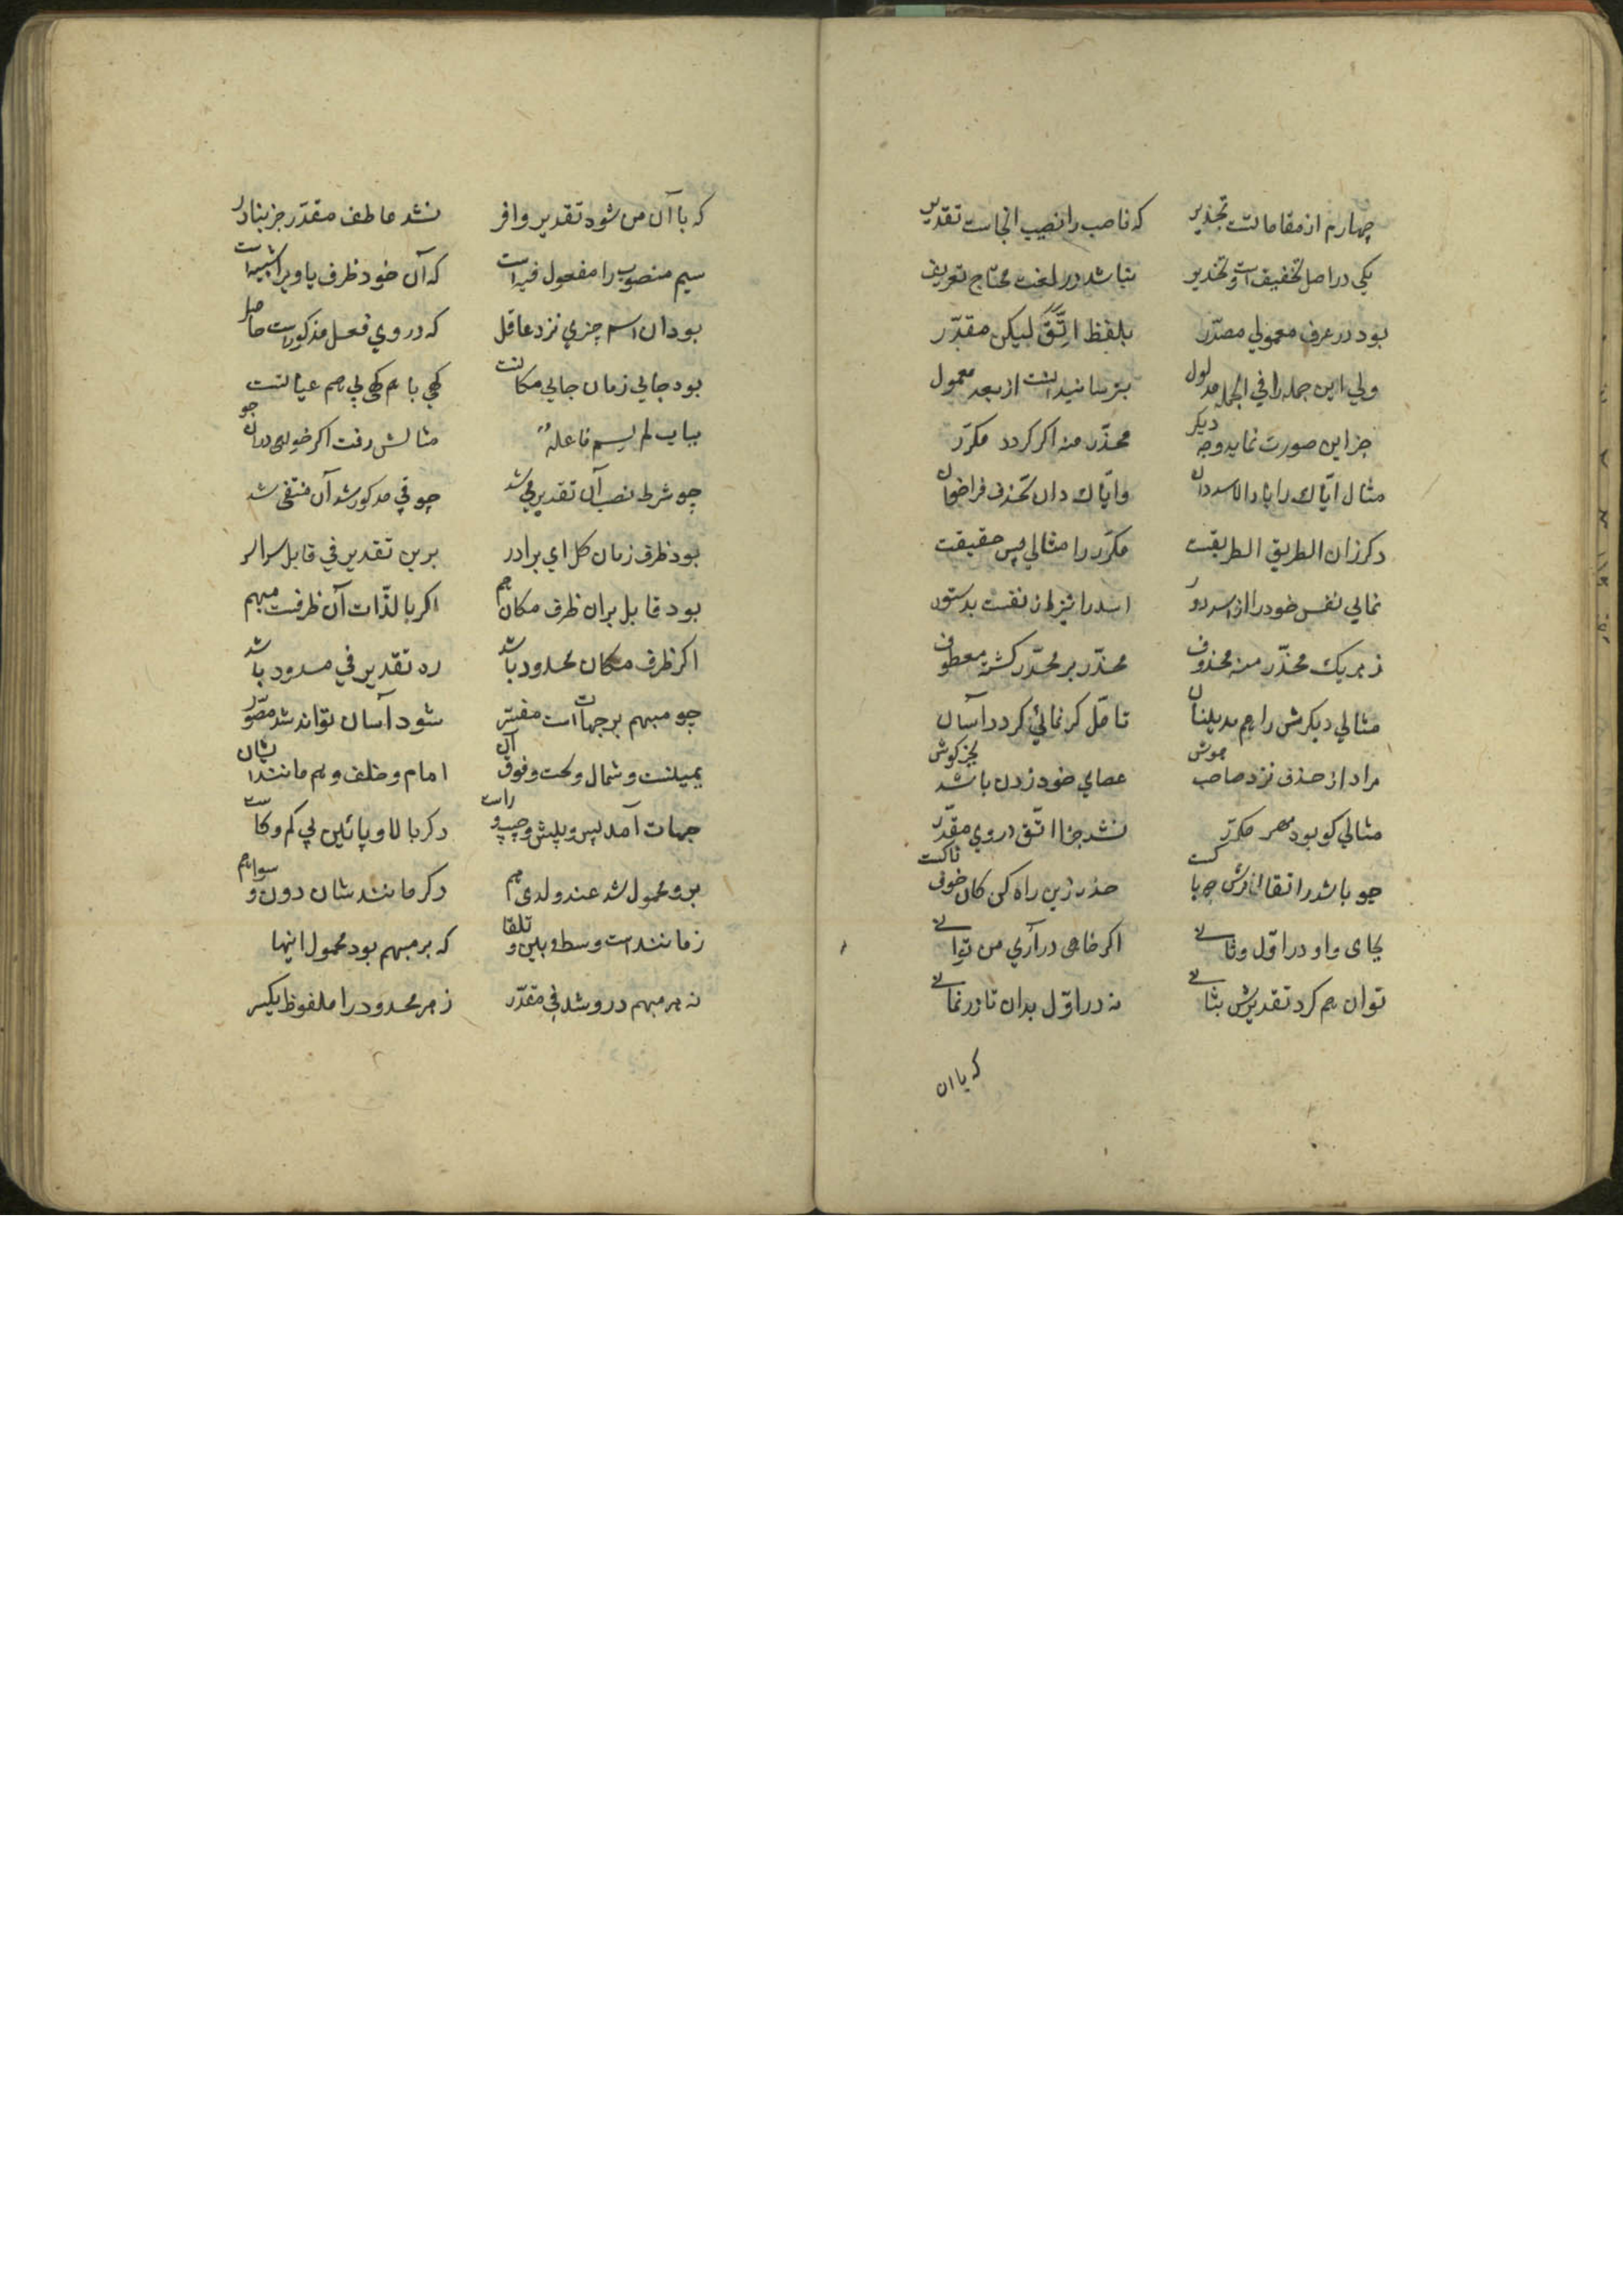 چهارم از مقاماتست تحذیر که ناصب را نصیب انجاست تقدیر
یکی در اصل تخفیف است و تحذیر نباشد در لغت محتاج تعریف
بود در عرف معمولی مصدّر بلفظ اتّق لیکن مقدّر
ولی این جمله را فی الجمله مدلول از بعد معمول
جز این صورت نماید وجه دیگر محذّر منه اگر گردد مکرّر
مثال ایّاک را با والاسد دان وایّاک دان تحذف فراخوان
دگر زان الطریق الطریقست مکرّر را مثالی پس حقیقت
نمائی نفس خود را از اسد دور اسد را نیز از نفست بدستور
ز هر یک محذّر منه محذوف محذّر بر محذّر گشته معطوف
مثالی دیگرش را هم بدینسان تامّل گر نمائی گردد آسان
مراد از حذف نزد صاحب هوش عصای خود زدن باشد بخرگوش
مثالی کو بود مکرّر نشد جز اتّق در وی مقدّر
چو باشد حذر زین راه کن کان
بجای واو در اوّل و ثانی اگر خواهی درآری من توانی
توان هم کرد تقدیرش بثانی نه در اوّل بدان تا در نمانی
که با ان
که با آن من شود تقدیر وافر نشد عاطف مقدّر جز بنادر
سیم منصوب را مفعول فیه است که آن خود ظرف یا ویرا شبیه است
بود آن اسم چیزی نزد عاقل که در وی فعل مذکورست حاصل
بود جائی زمان جائی مکانست گهی با هم گهی بی هم عیانست
بباب لم یسم فاعله مثالش رفت اگر خواهی در آن جو
چو شرط نصب آن تقدیر فی شد چو فی مذکور شد آن منتفی شد
بود ظرف زمان کل ای برادر برین تقدیر فی قابل سراسر
بود قابل بر آن ظرف مکان هم اگر بالذّات آن ظرفست مبهم
اگر ظرف مکان محدود باشد ره تقدیر فی مسدود باشد
چو مبهم بر جهات است مفسّر شود آسان تواند شد مصوّر
یمینست و شمال و تحت و فوق آن امام و خلف و هم مانند ایشان
جهات آمد پس و پیش و چپ و راست دگر بالا و پائین بی کم و کاست
برو محمول شد عند و لدی هم دگر مانند شان دون و سوا هم
ز مانند است وسط و بین و تلقا که بر مبهم بود محمول اینها
نه هر مبهم درو شد فی مقدّر ز هر محدود را ملفوظ یکسر